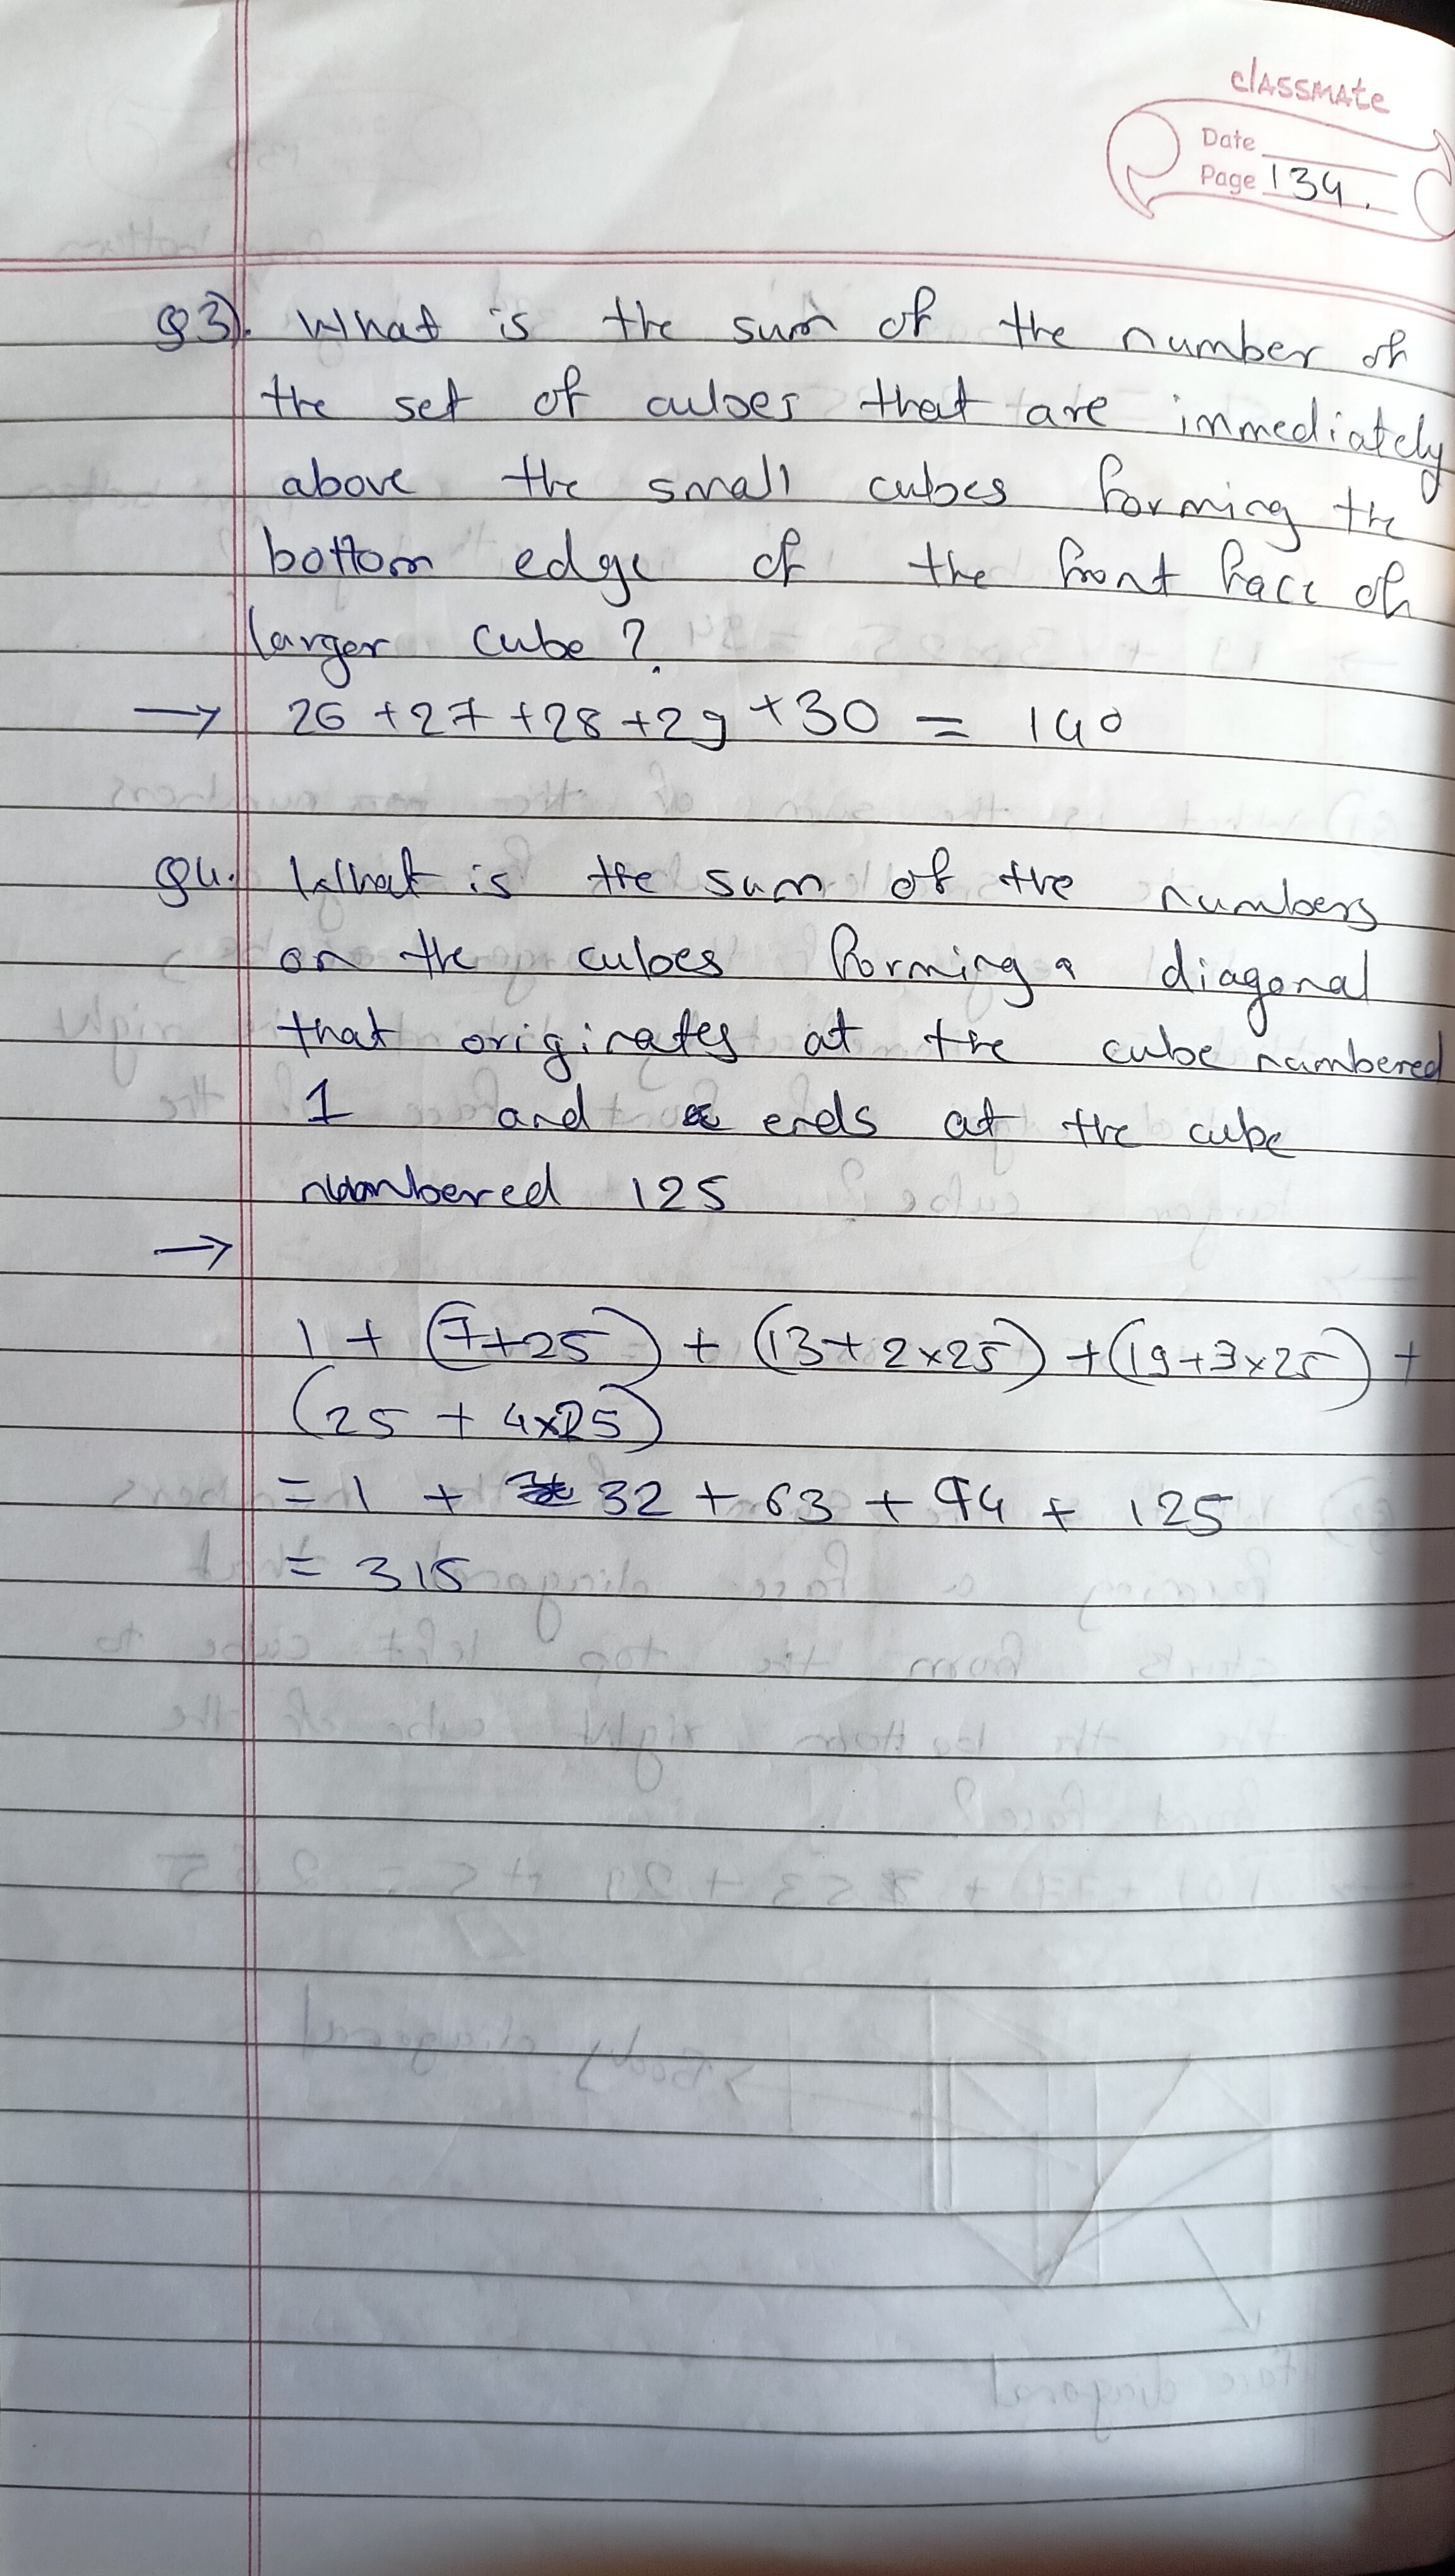 classmate
Date
Page 134.
Q3). What is the sum of the number of
the set of cubes that are immediately
above the small cubes forming the
bottom edge of the front face of
larger cube?
→ 26 + 27 + 28 + 29 + 30 = 140
Q4. What is the sum of the numbers
on the cubes forming a diagonal
that originates at the cube numbered
1 and ends at the cube
numbered 125
→
1 + (7+25) + (13+2×25) + (19+3×25) +
(25 + 4×25)
= 1 + 32 + 63 + 94 + 125
= 315